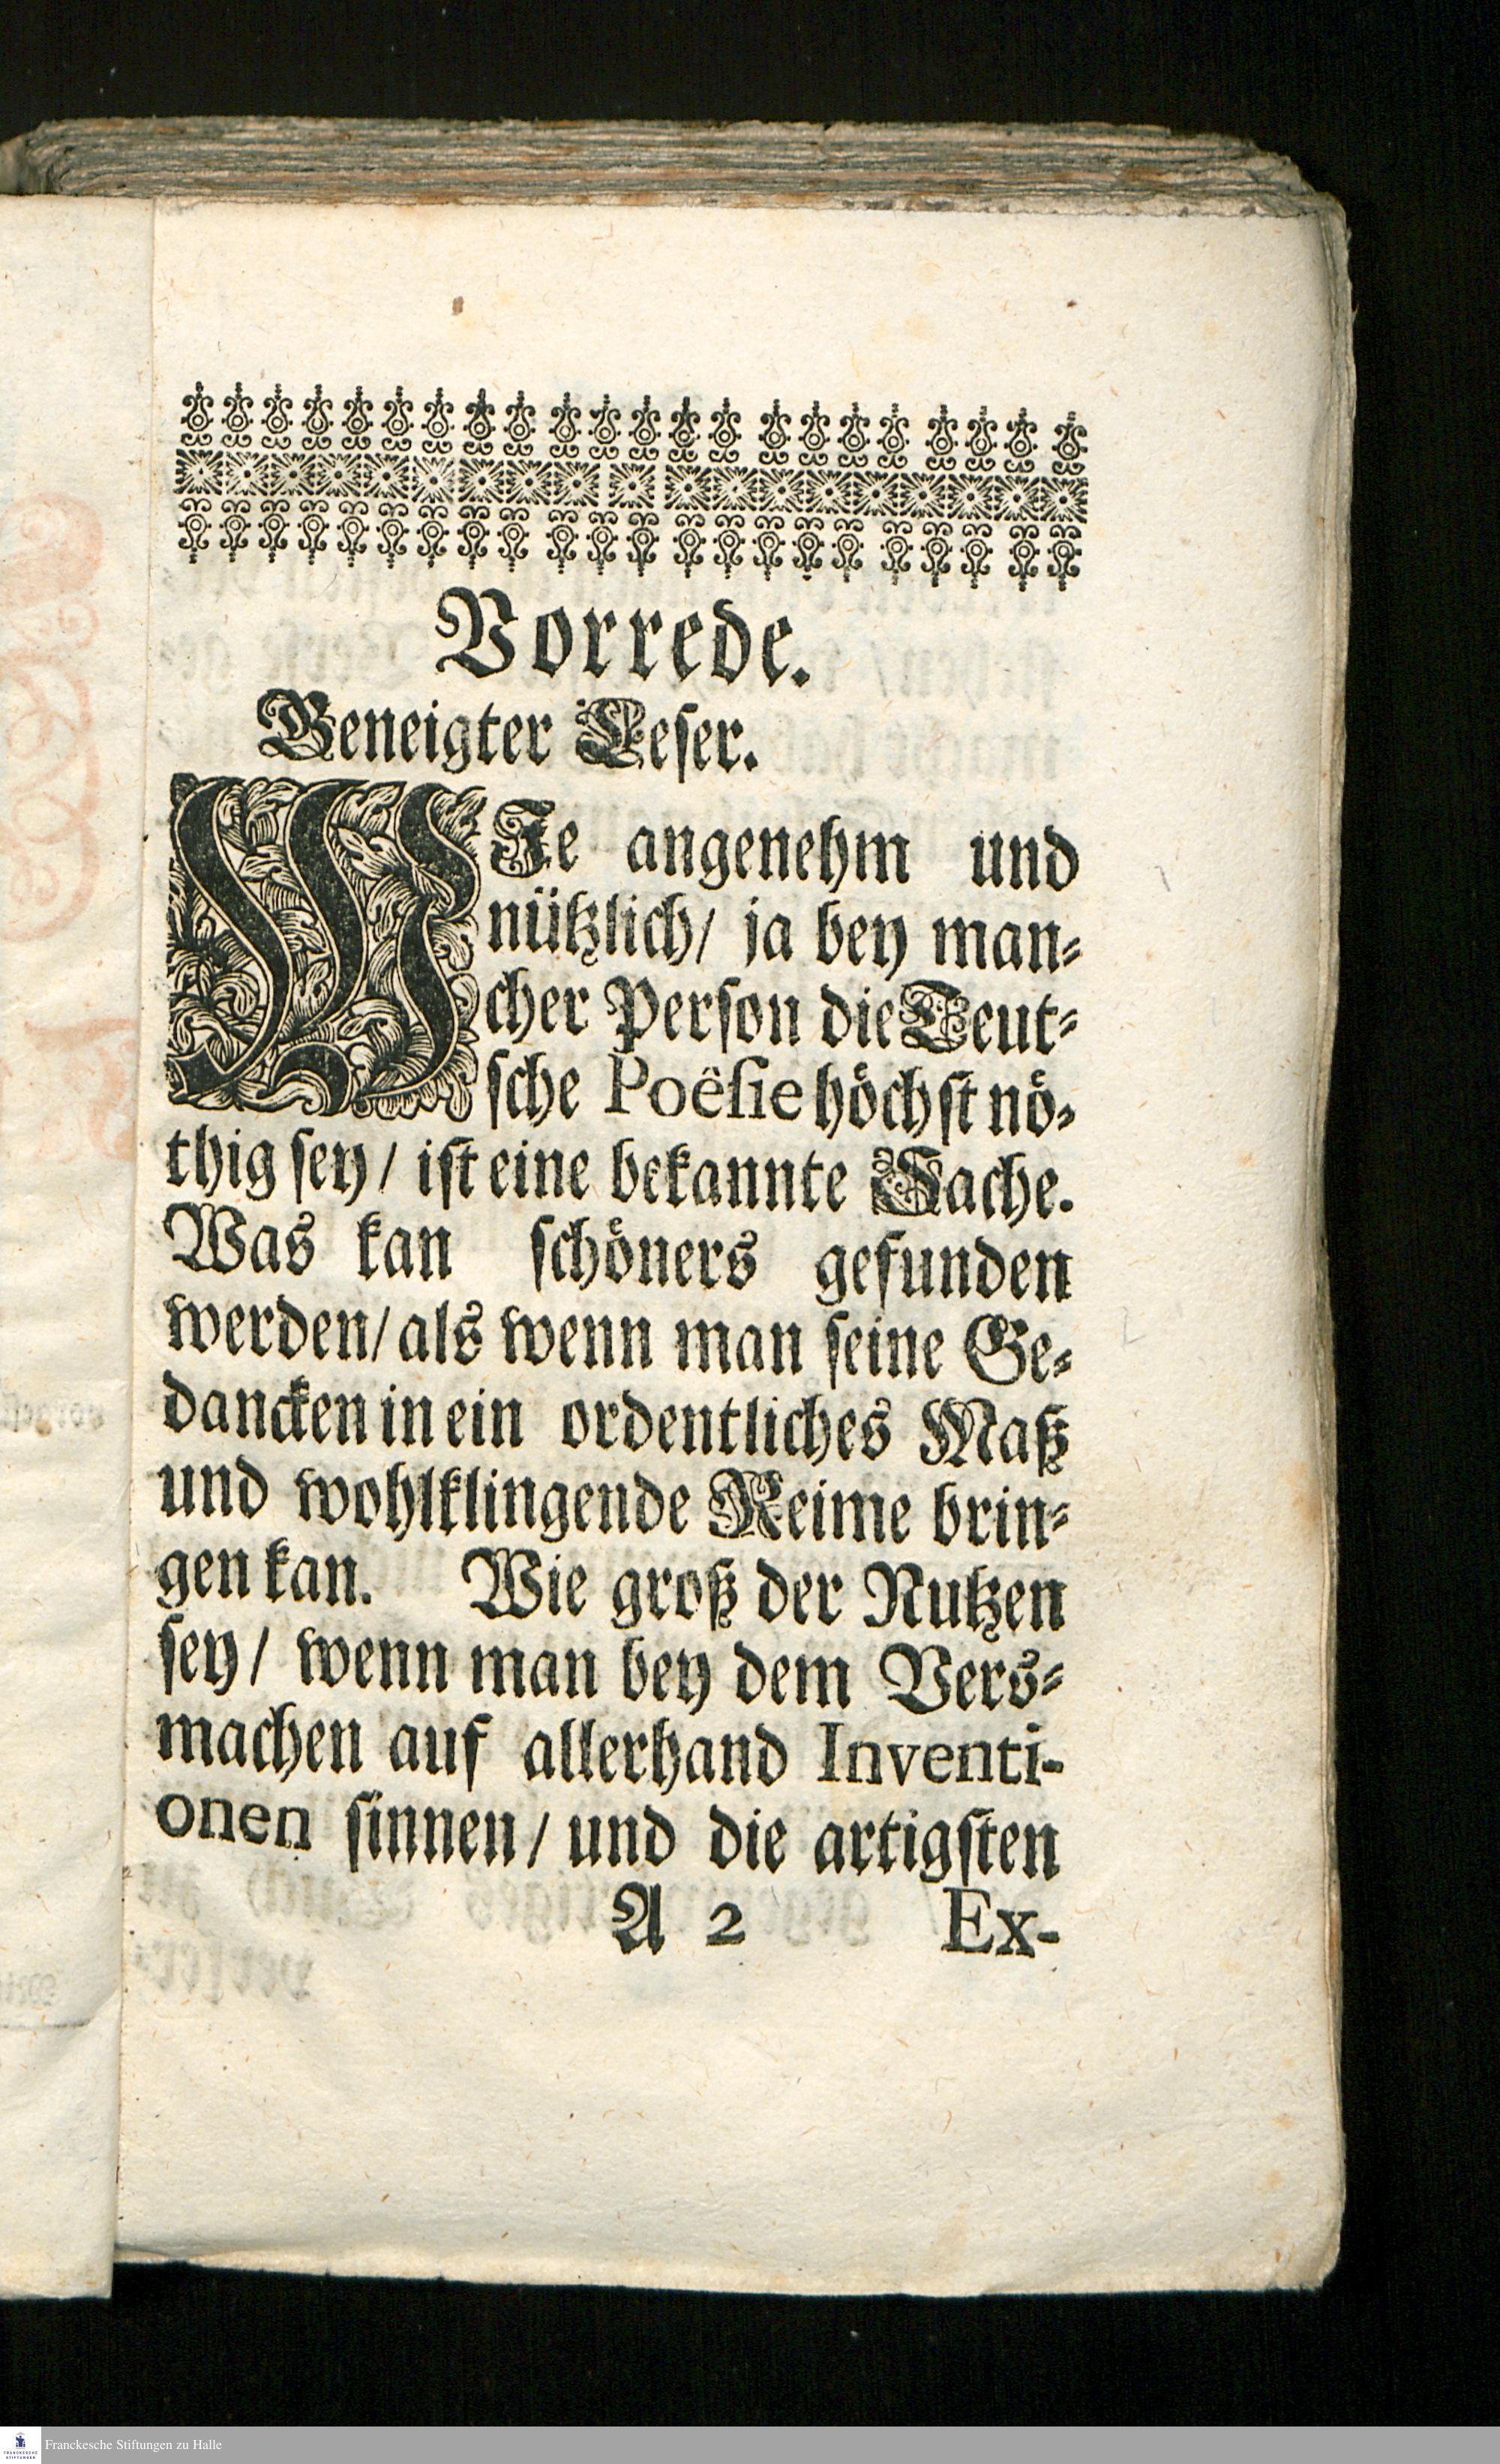 Vorrede.
Geneigter Leser.
WIe angenehm und
nützlich/ ja bey man-
cher Person die Teut-
sche Poësie höchst nö-
thig sey/ ist eine bekannte Sache.
Was kan schöners gefunden
werden/ als wenn man seine Ge-
dancken in ein ordentliches Maß
und wohlklingende Reime brin-
gen kan. Wie groß der Nutzen
sey/ wenn man bey dem Vers-
machen auf allerhand Inventi-
onen sinnen/ und die artigsten
A 2 Ex-
Franckesche Stiftungen zu Halle